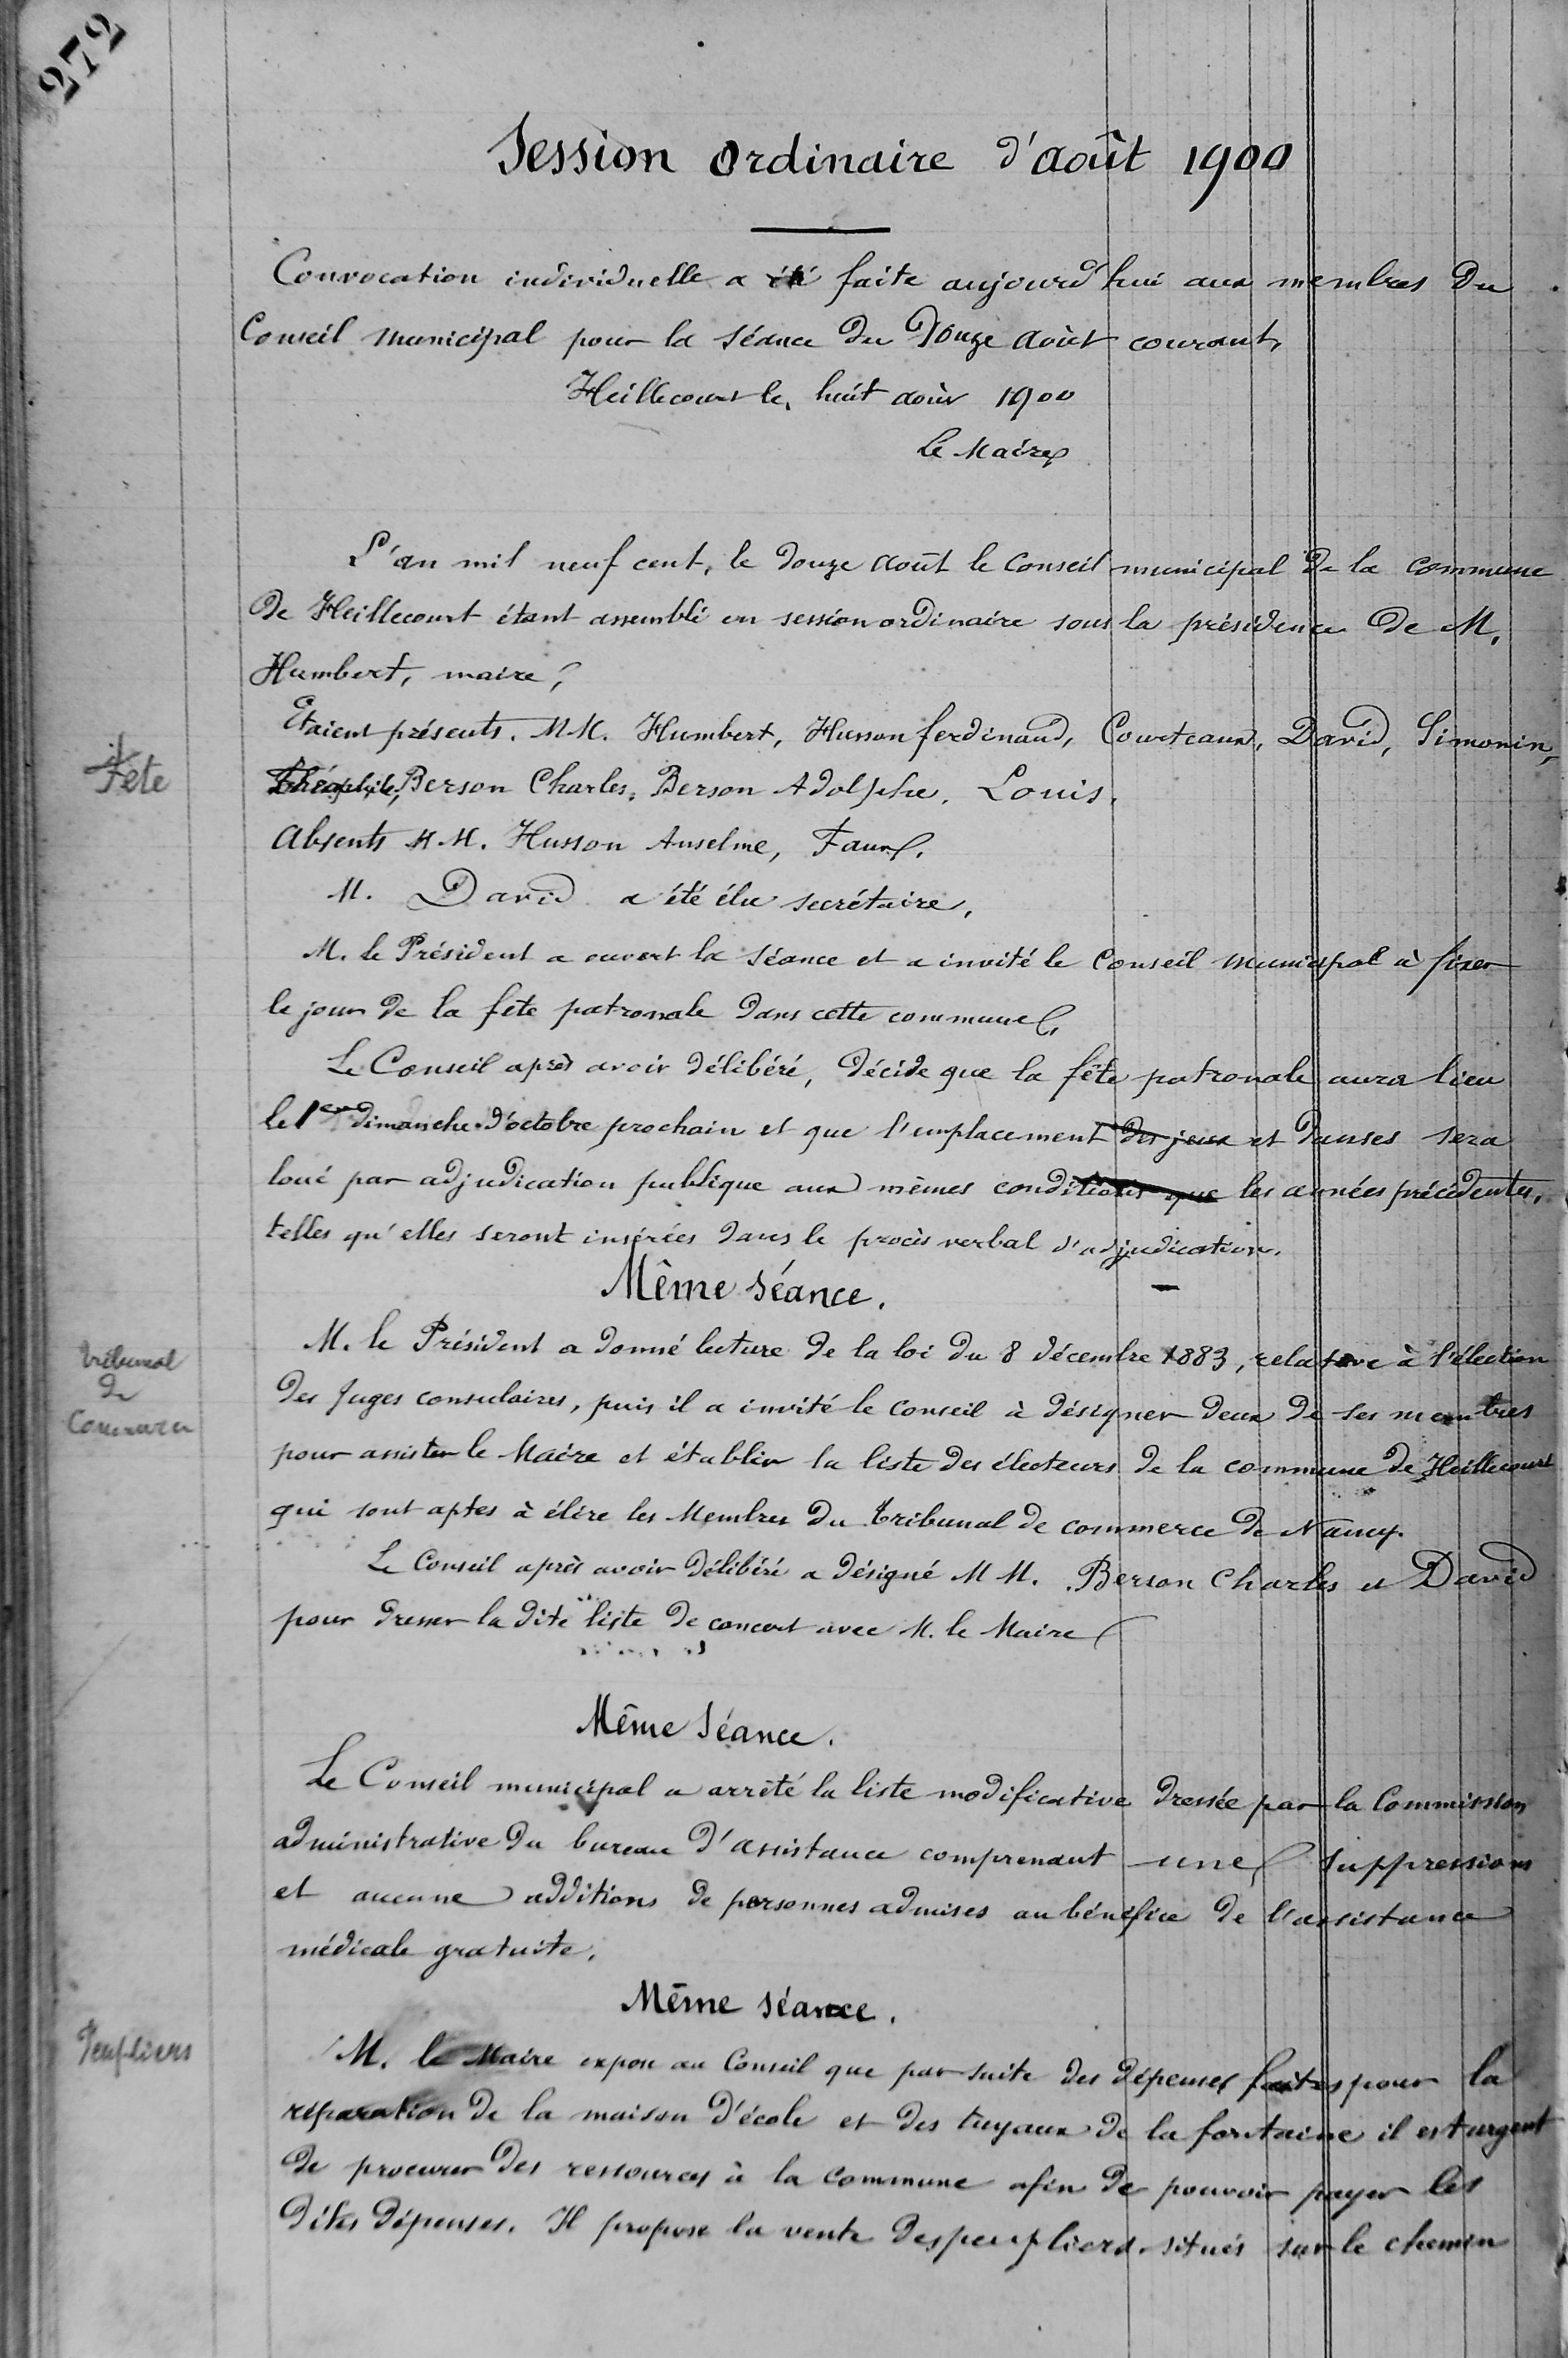 272
Session ordinaire d'août 1900
Convocation individuelle a été faite aujourd'hui aux membres du
Conseil municipal pour la séance du Douze août courant,
Heillecourt le, huit août 1900
Le Maire
L'an mil neuf cent, le douze août le Conseil municipal de la commune
de Heillecourt étant assemblé en session ordinaire sous la présidence de M.
Humbert, maire,
Etaient présents. MM. Humbert, Husson ferdinand, Courteaux, David, Simonin,
Fête
Théophile, Berson Charles, Berson Adolphe, Louis.
Absents MM. Husson Anselme,
M. David a été élu secrétaire,
M. le Président a ouvert la séance et a invité le Conseil municipal à fixer
le jour de la fête patronale dans cette commune,
Le Conseil après avoir délibéré, décide que la fête patronale aura lieu
le 1er dimanche d'octobre prochain et que l'emplacement des jeux et danses sera
loué par adjudication publique aux mêmes conditions que les années précédentes,
telles qu'elles seront insérées dans le procès verbal d'adjudication.
Même séance.
Tribunal
de
Commerce
M. le Président a donné lecture de la loi du 8 décembre 1883, relative à l'élection
des Juges consulaires, puis il a invité le Conseil à désigner deux de ses membres
pour assister le Maire et établir la liste des électeurs de la commune de Heillecourt
qui sont aptes à élire les Membres du Tribunal de commerce de Nancy.
Le Conseil après avoir délibéré a désigné MM. Berson Charles et David
pour dresser la dite liste de concert avec M. le Maire
Même séance.
Le Conseil municipal a arrêté la liste modificative dressée par la Commission
administrative du bureau d'assistance comprenant une suppressions
et aucune additions de personnes admises au bénéfice de l'assistance
médicale gratuite.
Même séance.
Peupliers
M. le Maire expose au Conseil que par suite des dépenses faites pour la
réparation de la maison d'école et des tuyaux de la fontaine il est urgent
de procurer des ressources à la commune afin de pouvoir payer les
dites dépenses. Il propose la vente des peupliers situés sur le chemin